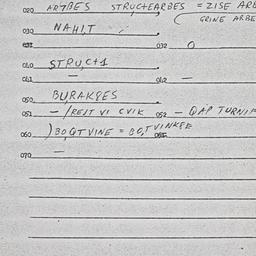 020 STRUCTEARBES = ZISE ARB
GRINE ARBE
030 NAHIT
031 032 O
040 STRUCT 1
041 — 042 —
050 BURAKGES
051 — / REST VI CVIK 052 — QAP TURNIP
060 ) BOGTVINE = BOTVINKEE
070 —